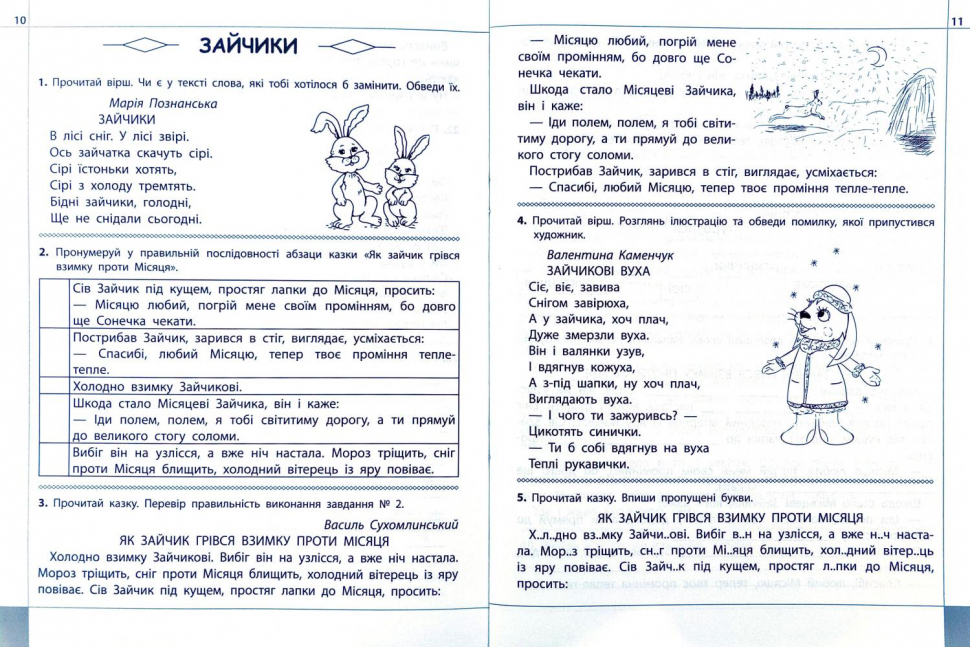 10
ЗАЙЧИКИ
1. Прочитай вірш. Чи є у тексті слова, які тобі хотілося б замінити. Обведи їх.
Марія Познанська
ЗАЙЧИКИ
В лісі сніг. У лісі звірі.
Ось зайчатка скачуть сірі.
Сірі їстоньки хотять,
Сірі з холоду тремтять.
Бідні зайчики, голодні,
Ще не снідали сьогодні.
2. Пронумеруй у правильній послідовності абзаци казки «Як зайчик грівся
взимку проти Місяця».
Сів Зайчик під кущем, простяг лапки до Місяця, просить:
— Місяцю любий, погрій мене своїм промінням, бо довго
ще Сонечка чекати.
Пострибав Зайчик, зарився в стіг, виглядає, усміхається:
— Спасибі, любий Місяцю, тепер твоє проміння тепле-
тепле.
Холодно взимку Зайчикові.
Шкода стало Місяцеві Зайчика, він і каже:
— Іди полем, полем, я тобі світитиму дорогу, а ти прямуй
до великого стогу соломи.
Вибіг він на узлісся, а вже ніч настала. Мороз тріщить, сніг
проти Місяця блищить, холодний вітерець із яру повіває.
3. Прочитай казку. Перевір правильність виконання завдання № 2.
Василь Сухомлинський
ЯК ЗАЙЧИК ГРІВСЯ ВЗИМКУ ПРОТИ МІСЯЦЯ
Холодно взимку Зайчикові. Вибіг він на узлісся, а вже ніч настала.
Мороз тріщить, сніг проти Місяця блищить, холодний вітерець із яру
повіває. Сів Зайчик під кущем, простяг лапки до Місяця, просить:
11
— Місяцю любий, погрій мене
своїм промінням, бо довго ще Со-
нечка чекати.
Шкода стало Місяцеві Зайчика,
він і каже:
— Іди полем, полем, я тобі світи-
тиму дорогу, а ти прямуй до вели-
кого стогу соломи.
Пострибав Зайчик, зарився в стіг, виглядає, усміхається:
— Спасибі, любий Місяцю, тепер твоє проміння тепле-тепле.
4. Прочитай вірш. Розглянь ілюстрацію та обведи помилку, якої припустився
художник.
Валентина Каменчук
ЗАЙЧИКОВІ ВУХА
Сіє, віє, завива
Снігом завірюха,
А у зайчика, хоч плач,
Дуже змерзли вуха.
Він і валянки узув,
І вдягнув кожуха,
А з-під шапки, ну хоч плач,
Виглядають вуха.
— І чого ти зажуривсь? —
Цикотять синички.
— Ти б собі вдягнув на вуха
Теплі рукавички.
5. Прочитай казку. Впиши пропущені букви.
ЯК ЗАЙЧИК ГРІВСЯ ВЗИМКУ ПРОТИ МІСЯЦЯ
Х..л..дно вз..мку Зайчи..ові. Вибіг в..н на узлісся, а вже н..ч наста-
ла. Мор..з тріщить, сн..г проти Мі..яця блищить, хол..дний вітер..ць
із яру повіває. Сів Зайч..к під кущем, простяг л..пки до Місяця,
просить: